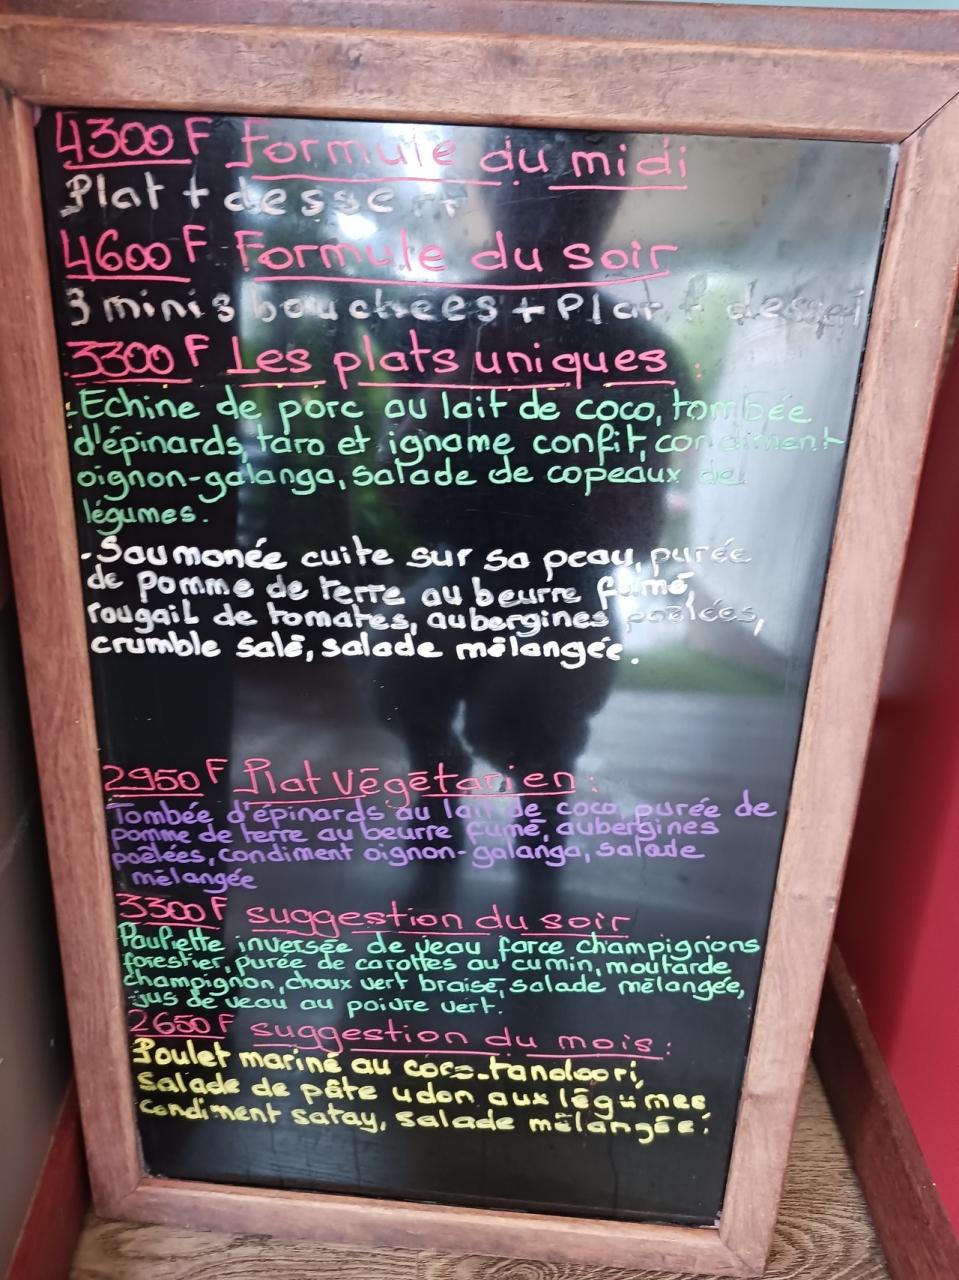 4300 F Formule du midi
Plat + dessert
4600 F Formule du soir
3 minis bouchées + Plat + dessert
3300 F Les plats uniques :
- Echine de porc au lait de coco, tombée
d'épinards, taro et igname confit, condiment
oignon-galanga, salade de copeaux de
légumes.
- Saumonée cuite sur sa peau, purée
de pomme de terre au beurre fumé,
rougail de tomates, aubergines poêlées,
crumble salé, salade mélangée.
2950 F Plat Végétarien :
Tombée d'épinards au lait de coco, purée de
pomme de terre au beurre fumé, aubergines
poêlées, condiment oignon-galanga, salade
mélangée
3300 F suggestion du soir
Paupiette inversée de veau farce champignons
forestier, purée de carottes au cumin, moutarde
champignon, choux vert braisé, salade mélangée,
jus de veau au poivre vert.
2650 F suggestion du mois :
Poulet mariné au coco-tandoori,
salade de pâte udon aux légumes
condiment satay, salade mélangée.